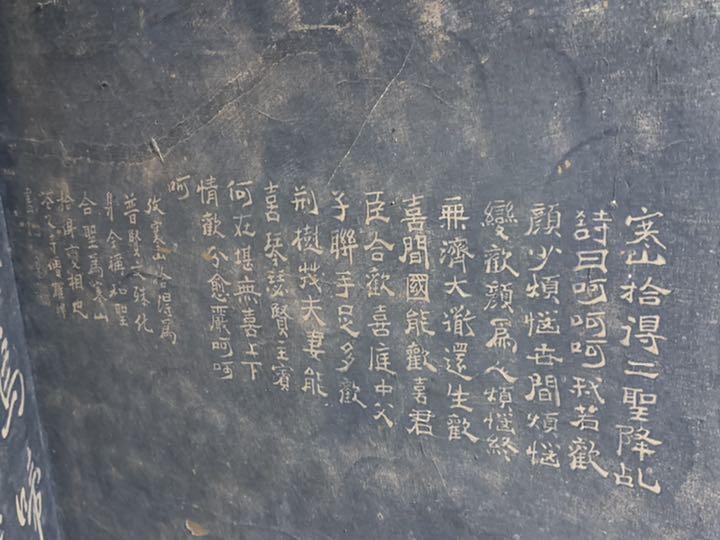 寒山拾得二聖降乩
詩曰呵呵呵我若歡
顏少煩惱世間煩惱
變歡顏為人煩惱終
無濟大道還生歡
喜間國能歡喜君
臣合歡喜庭中父
子聯手足多歡
荊樹茂夫妻能
喜琴瑟賢主賓
何在堪無喜上下
情歡分愈嚴呵呵
呵
攷寒山拾得為
普賢文殊化
身今稱和聖
合聖為寒山
拾得變相也
花之寺僧羅聘
書